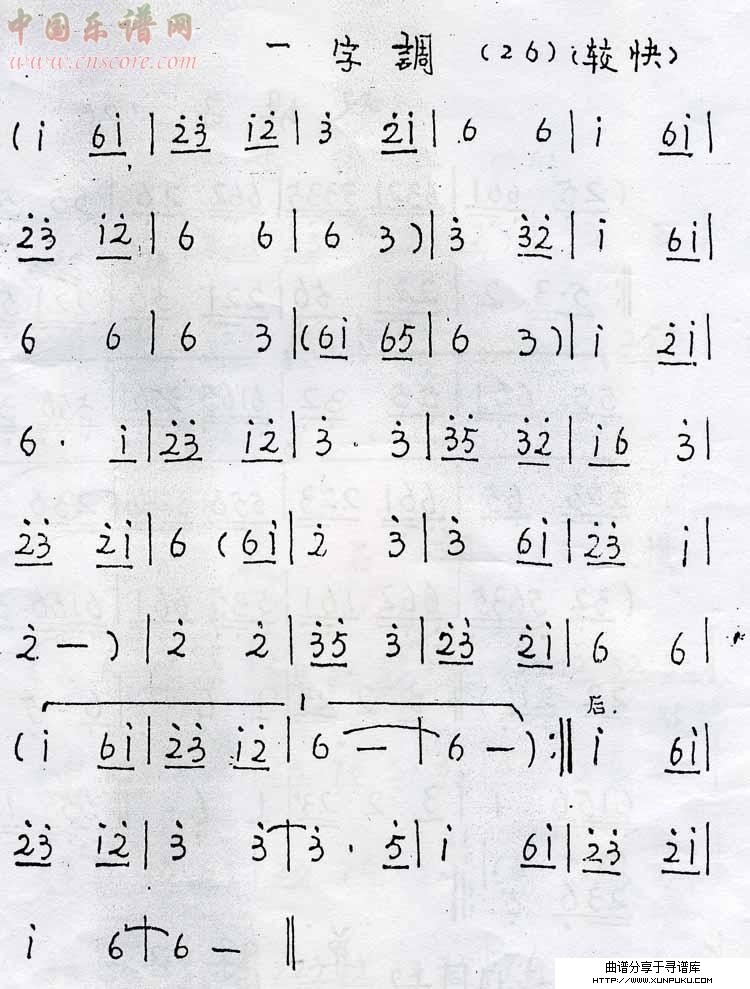 中国乐谱网
www.cnscore.com
一字調 (26) (较快)
(i̇ 6i̇ | 2̇3̇ i̇2̇ | 3̇ 2̇i̇ | 6 6 | i̇ 6i̇ |
2̇3̇ i̇2̇ | 6 6 | 6 3) | 3̇ 3̇2̇ | i̇ 6i̇ |
6 6 | 6 3 | (6i̇ 65 | 6 3) | i̇ 2̇i̇ |
6 · i̇ | 2̇3̇ i̇2̇ | 3̇ · 3̇ | 3̇5̇ 3̇2̇ | i̇6 3̇ |
2̇3̇ 2̇i̇ | 6 (6i̇ | 2̇ 3̇ | 3̇ 6i̇ | 2̇3̇ i̇ |
2̇ — ) | 2̇ 2̇ | 3̇5̇ 3̇ | 2̇3̇ 2̇i̇ | 6 6 |
1 后.
(i̇ 6i̇ | 2̇3̇ i̇2̇ | 6 — | 6 — ) :‖ i̇ 6i̇ |
2̇3̇ i̇2̇ | 3̇ 3̇ | 3̇ · 5̇ | i̇ 6i̇ | 2̇3̇ 2̇i̇ |
i̇ 6 | 6 — ‖
曲谱分享于寻谱库
HTTP://WWW.XUNPUKU.COM